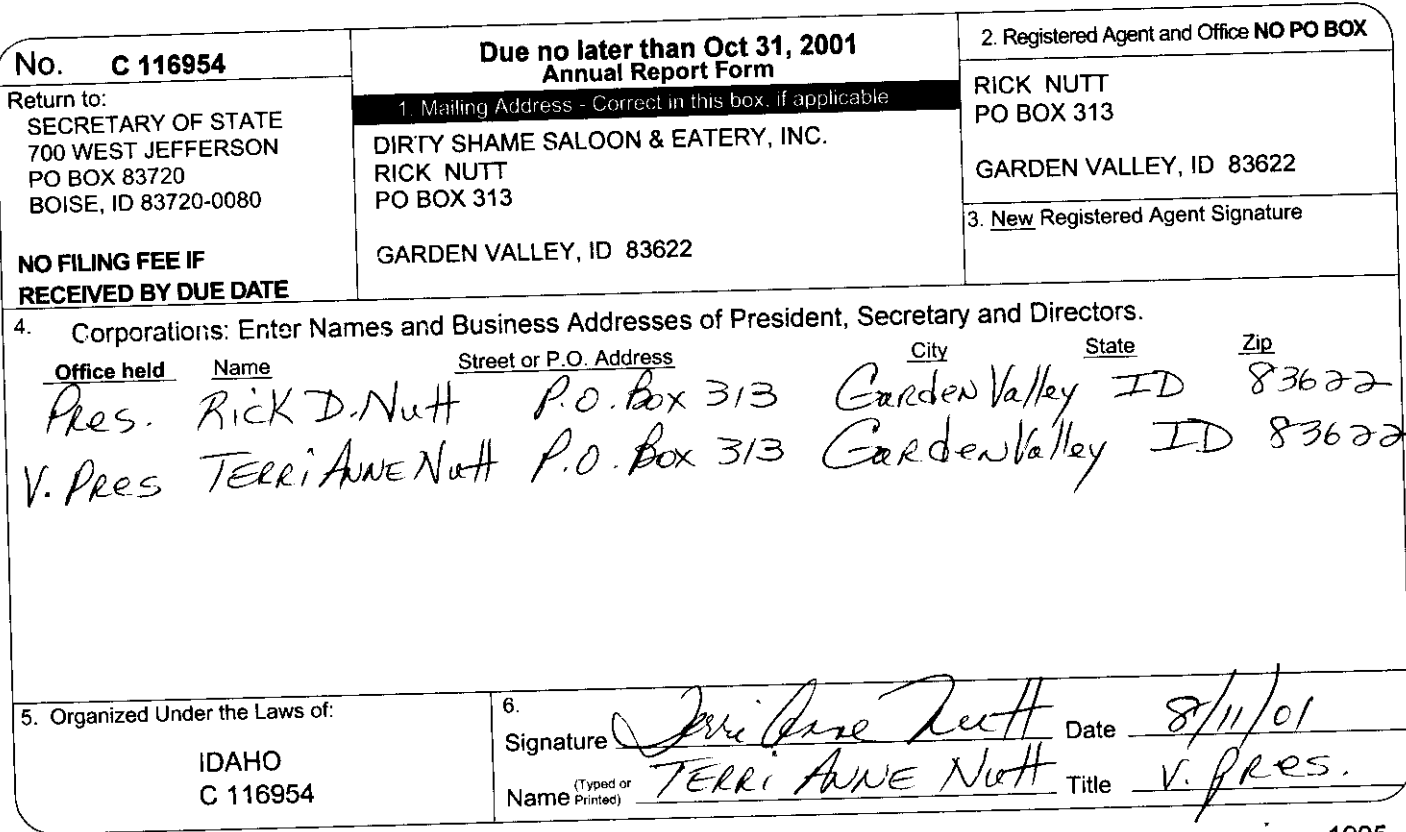 No. C 116954
Return to:
SECRETARY OF STATE
700 WEST JEFFERSON
PO BOX 83720
BOISE, ID 83720-0080
NO FILING FEE IF
RECEIVED BY DUE DATE
Due no later than Oct 31, 2001
Annual Report Form
1. Mailing Address - Correct in this box, if applicable
DIRTY SHAME SALOON & EATERY, INC.
RICK NUTT
PO BOX 313
GARDEN VALLEY, ID 83622
2. Registered Agent and Office NO PO BOX
RICK NUTT
PO BOX 313
GARDEN VALLEY, ID 83622
3. New Registered Agent Signature
4. Corporations: Enter Names and Business Addresses of President, Secretary and Directors.
Office held Name Street or P.O. Address City State Zip
Pres. Rick D. Nutt P.O. Box 313 Garden Valley ID 83622
V. Pres Terri Anne Nutt P.O. Box 313 Garden Valley ID 83622
5. Organized Under the Laws of:
IDAHO
C 116954
6.
Signature Terri Anne Nutt Date 8/11/01
Name (Typed or Printed) Terri Anne Nutt Title V. Pres.